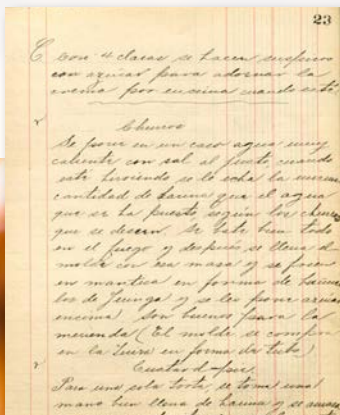 23
con 4 claras se hacen suspiros
con azúcar para adornar la
crema por encima cuando esté
Churros
Se pone en un caso agua muy
caliente con sal al gusto cuando
esté hirviendo se le echa la misma
cantidad de harina que el agua
que se ha puesto, según los churros
que se deseen. Se bate bien todo
en el fuego y despues se llena el
molde con esa masa y se frien
en manteca en forma de buñue
los de Jeringa y se les pone azucar
encima. Son buenos para la
merienda (El molde se compra
en la in forma de tubo)
Custard pie
Para una sola torta se toma una
mano bien llena de harina y se